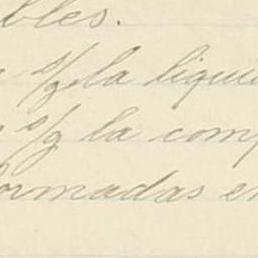 bles.
s/g la liqui
s/g la comp
ormadas en